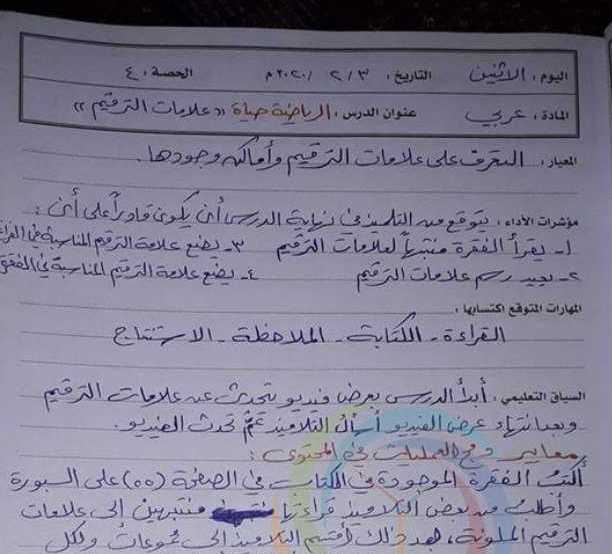 اليوم : الاثنين التاريخ : ٣ / ٢ / ٢٠٢٠م الحصة : ٤
المادة : عربي عنوان الدرس : الرياضة حياة "علامات الترقيم"
المعيار : التعرف على علامات الترقيم وأماكن وجودها .
مؤشرات الأداء : يتوقع من التلميذ في نهاية الدرس أن يكون قادراً على أن :
١- يقرأ الفقرة منتبهاً لعلامات الترقيم ٣- يضع علامة الترقيم المناسبة في الفراغ
٢- يجيد رسم علامات الترقيم ٤- يضع علامة الترقيم المناسبة في الفقرة
المهارات المتوقع اكتسابها :
القراءة - الكتابة - الملاحظة - الاستنتاج
السياق التعليمي : أبدأ الدرس بعرض فيديو يتحدث عن علامات الترقيم
وبعد انتهاء عرض الفيديو أسأل التلاميذ عمَّ تحدث الفيديو .
معايير دمج العمليات في المحتوى :
أكتب الفقرة الموجودة في الكتاب في الصفحة (٥٥) على السبورة
وأطلب من بعض التلاميذ قراءتها منتبهين إلى علامات
الترقيم الملونة ، بعد ذلك أقسم التلاميذ إلى مجموعات ولكل